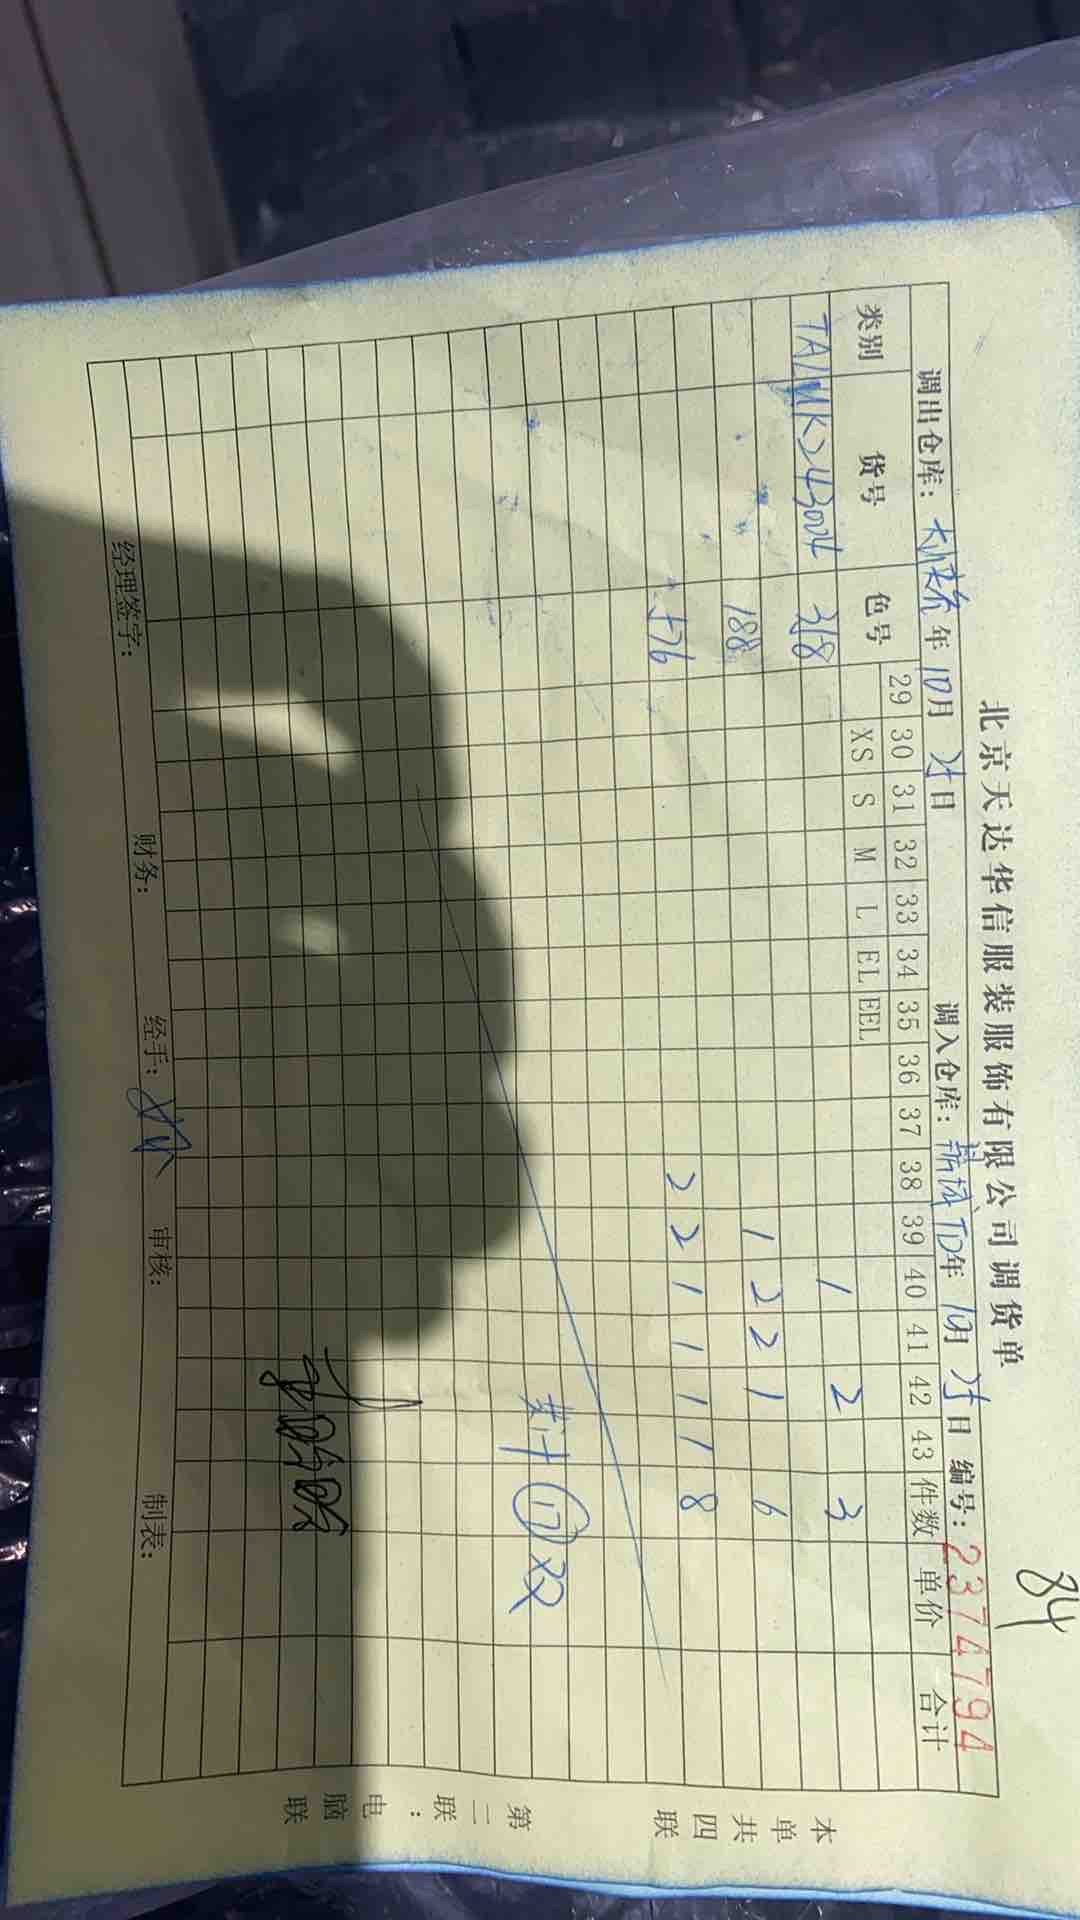 84
北京天达华信服装服饰有限公司调货单
调出仓库: 年 10月 25日 调入仓库: TD年 10月 25日 编号: 2374794
类别 货号 色号 29 30 31 32 33 34 35 36 37 38 39 40 41 42 43 件数 单价 合计
XS S M L EL EEL
TA/MK24300 318 1 2 3
188 1 2 2 1 6
576 2 2 1 1 1 1 8
共计 17 双
经理签字: 财务: 经手: 审核: 制表:
本单共四联
第二联:电脑联